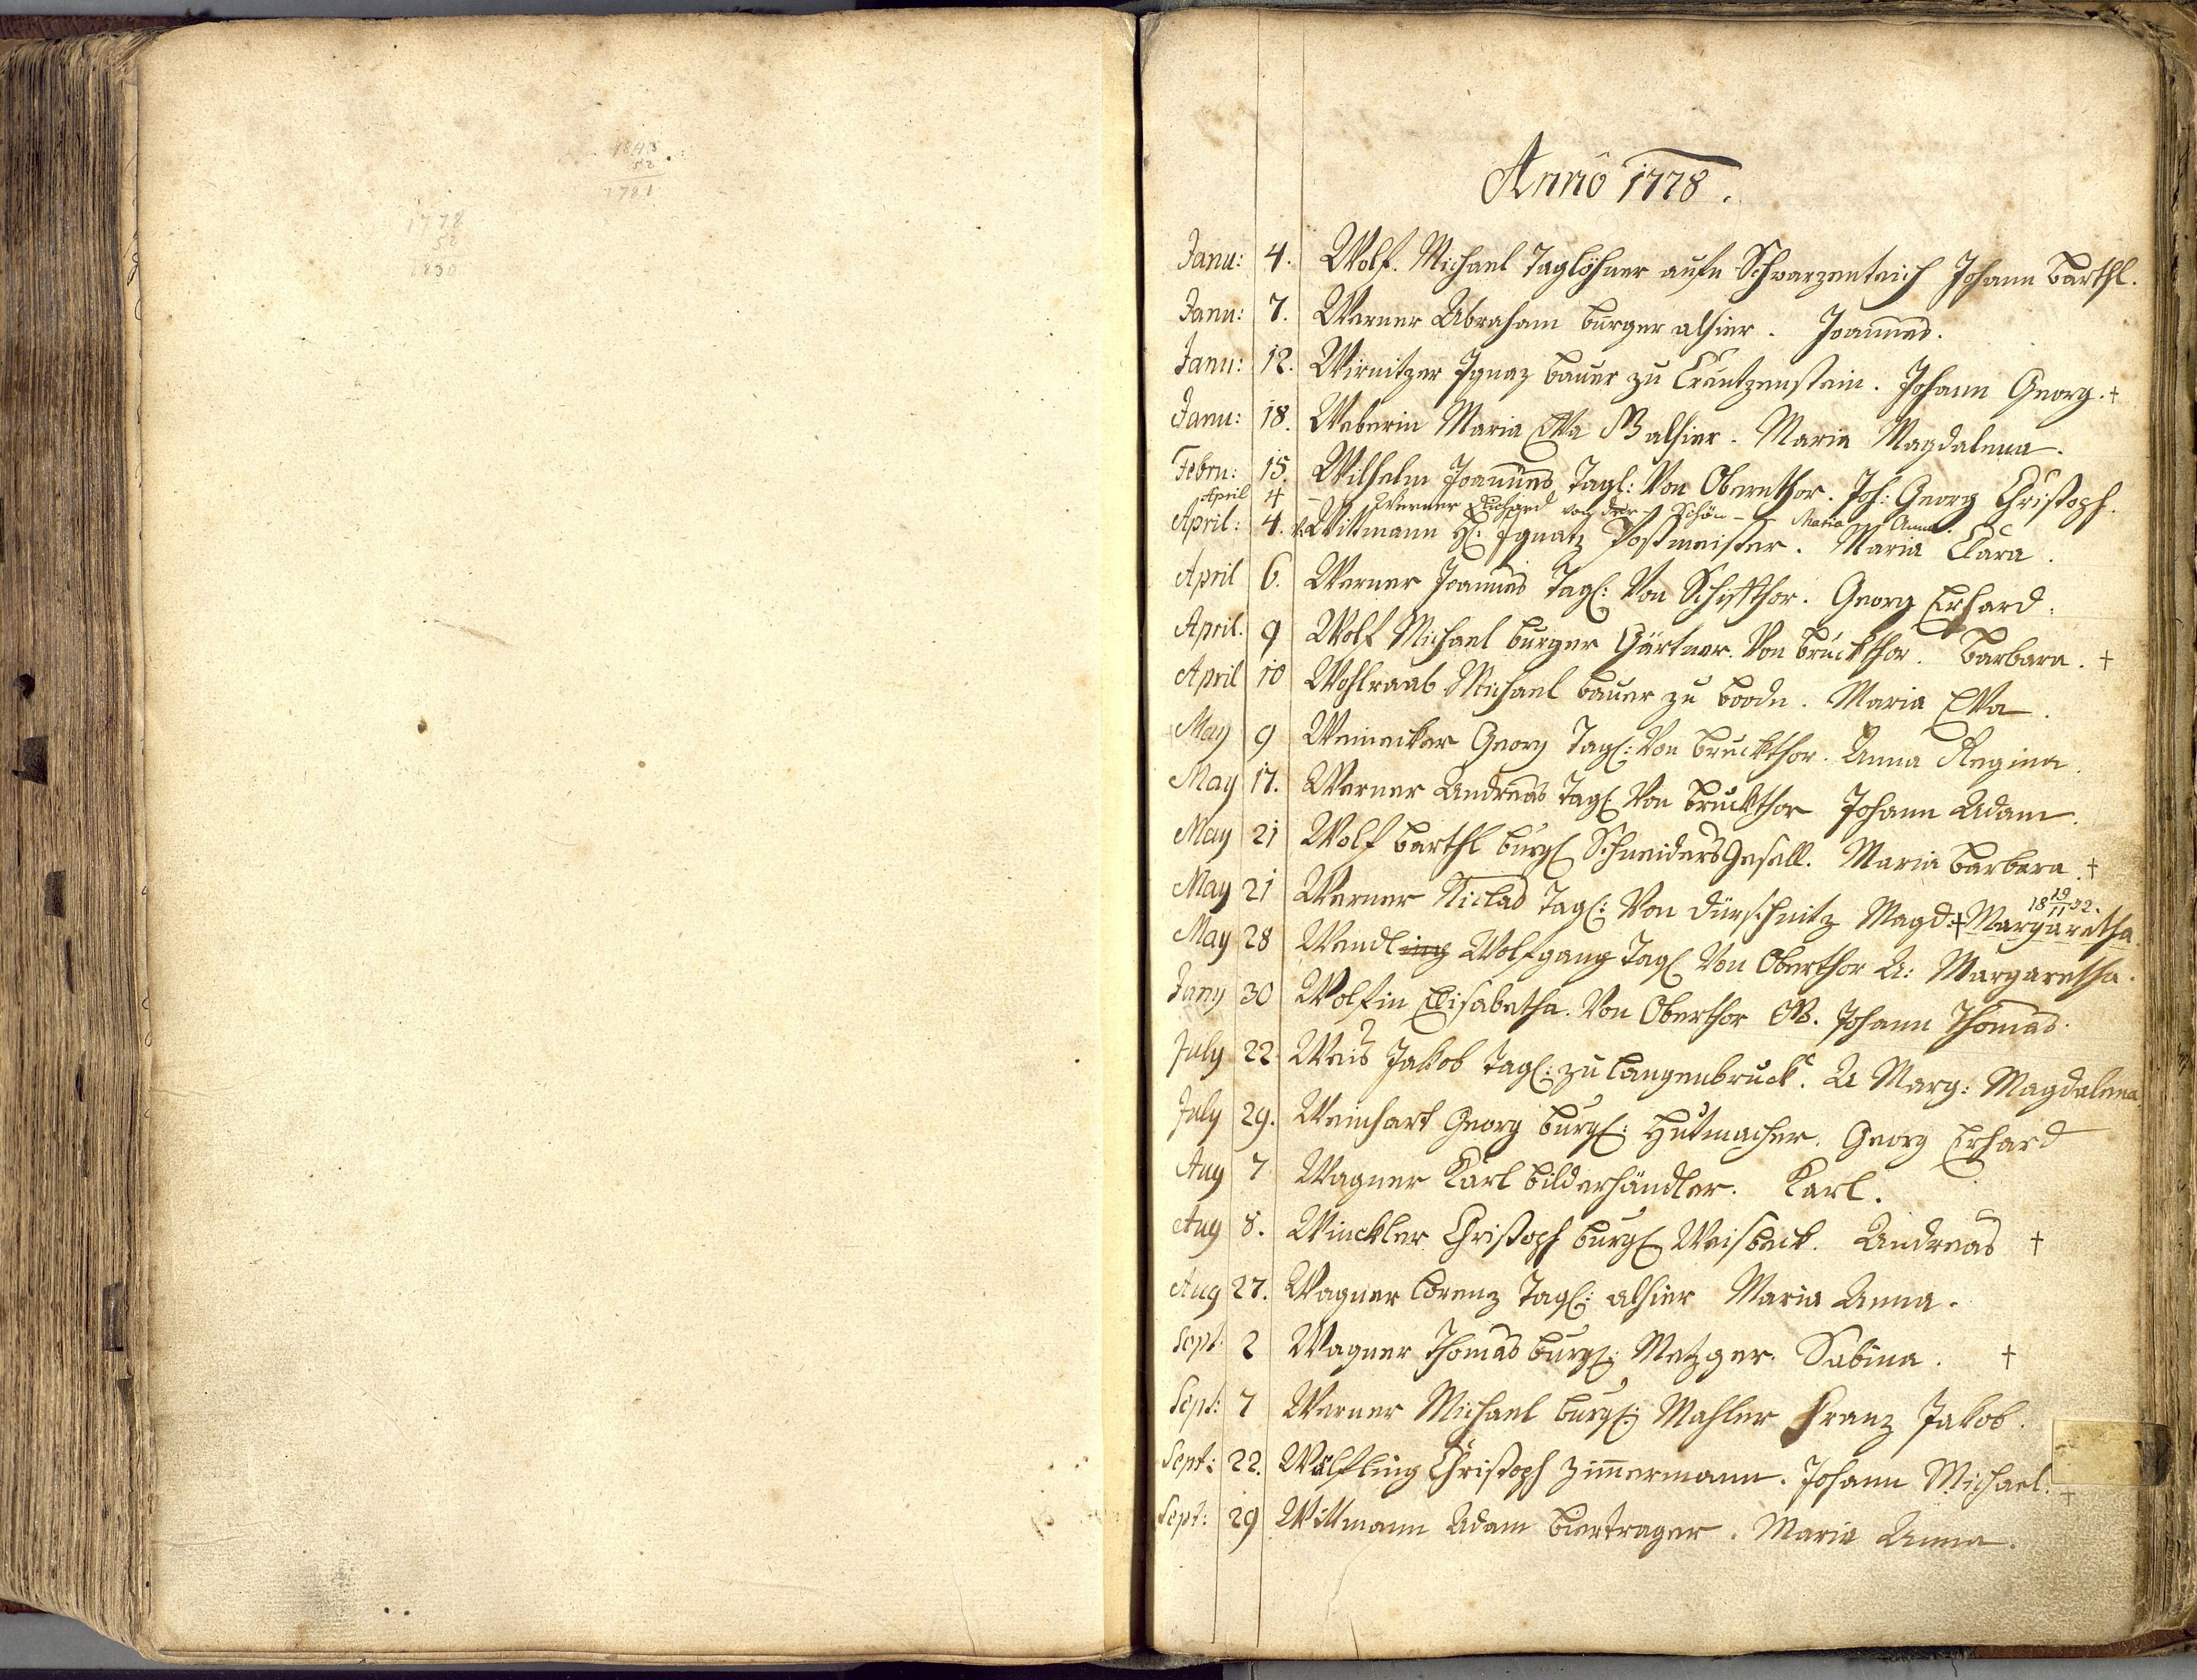 1843
52
1781
1778
52
1830
Anno 1778.
Janu: 4. Wolf Michael Taglöhner aufn Schwarzenteich Johann Barthl.
Janu: 7. Werner Abraham burger alhier. Joannes.
Janu: 12. Wirnitzer Ignaz baur zu Creutzenstein. Johann Georg. †
Janu: 18. Weberin Maria Eva alhier. Maria Magdalena.
Febru: 15. Wilhelm Joannes Tagl: Von Obernthor. Joh: Georg Christoph.
April 4 Werner von der Schön Maria Anna.
April: 4. Wittmann H: Ignatz Postmeister. Maria Clara.
April 6. Werner Joannes Tagl: Von Schiffthor. Georg Erhard.
April. 9 Wolf Michael burger Gärtner. Von bruckthor. Barbara. †
April 10 Wohlraab Michael baur zu Boodn. Maria Eva.
May 9 Weinecker Georg Tagl: Von bruckthor. Anna Regina.
May 17. Werner Andreas Tagl: Von bruckthor Johann Adam.
May 21 Wolf Barthl burgl Schneiders Gesell. Maria Barbara. †
May 21 Werner Niclas Tagl: Von Dürschnitz Magd: † Margaretha 18 19/11 32.
May 28 Wendling Wolfgang Tagl Von Oberthor A: Margaretha.
Juny 30 Wolfin Elisabetha. Von Oberthor Johann Thomas.
July 22 Weis Jakob Tagl: zu Langenbruck. A Marg: Magdalena.
July 29. Weinhart Georg burgl: Hutmacher. Georg Erhard
Aug 7 Wagner Karl bilderhändler. Karl.
Aug 8. Winckler Christoph burgl Weisbeck. Andreas †
Aug 27. Wagner Lorenz Tagl: alhier Maria Anna.
Sept: 2 Wagner Thomas burgl: Metzger. Sabina. †
Sept: 7 Werner Michael burgl: Mahler Franz Jakob.
Sept: 22. Wölfling Christoph Zimmermann. Johann Michael. †
Sept: 29 Wittmann Adam Biertrager. Maria Anna.